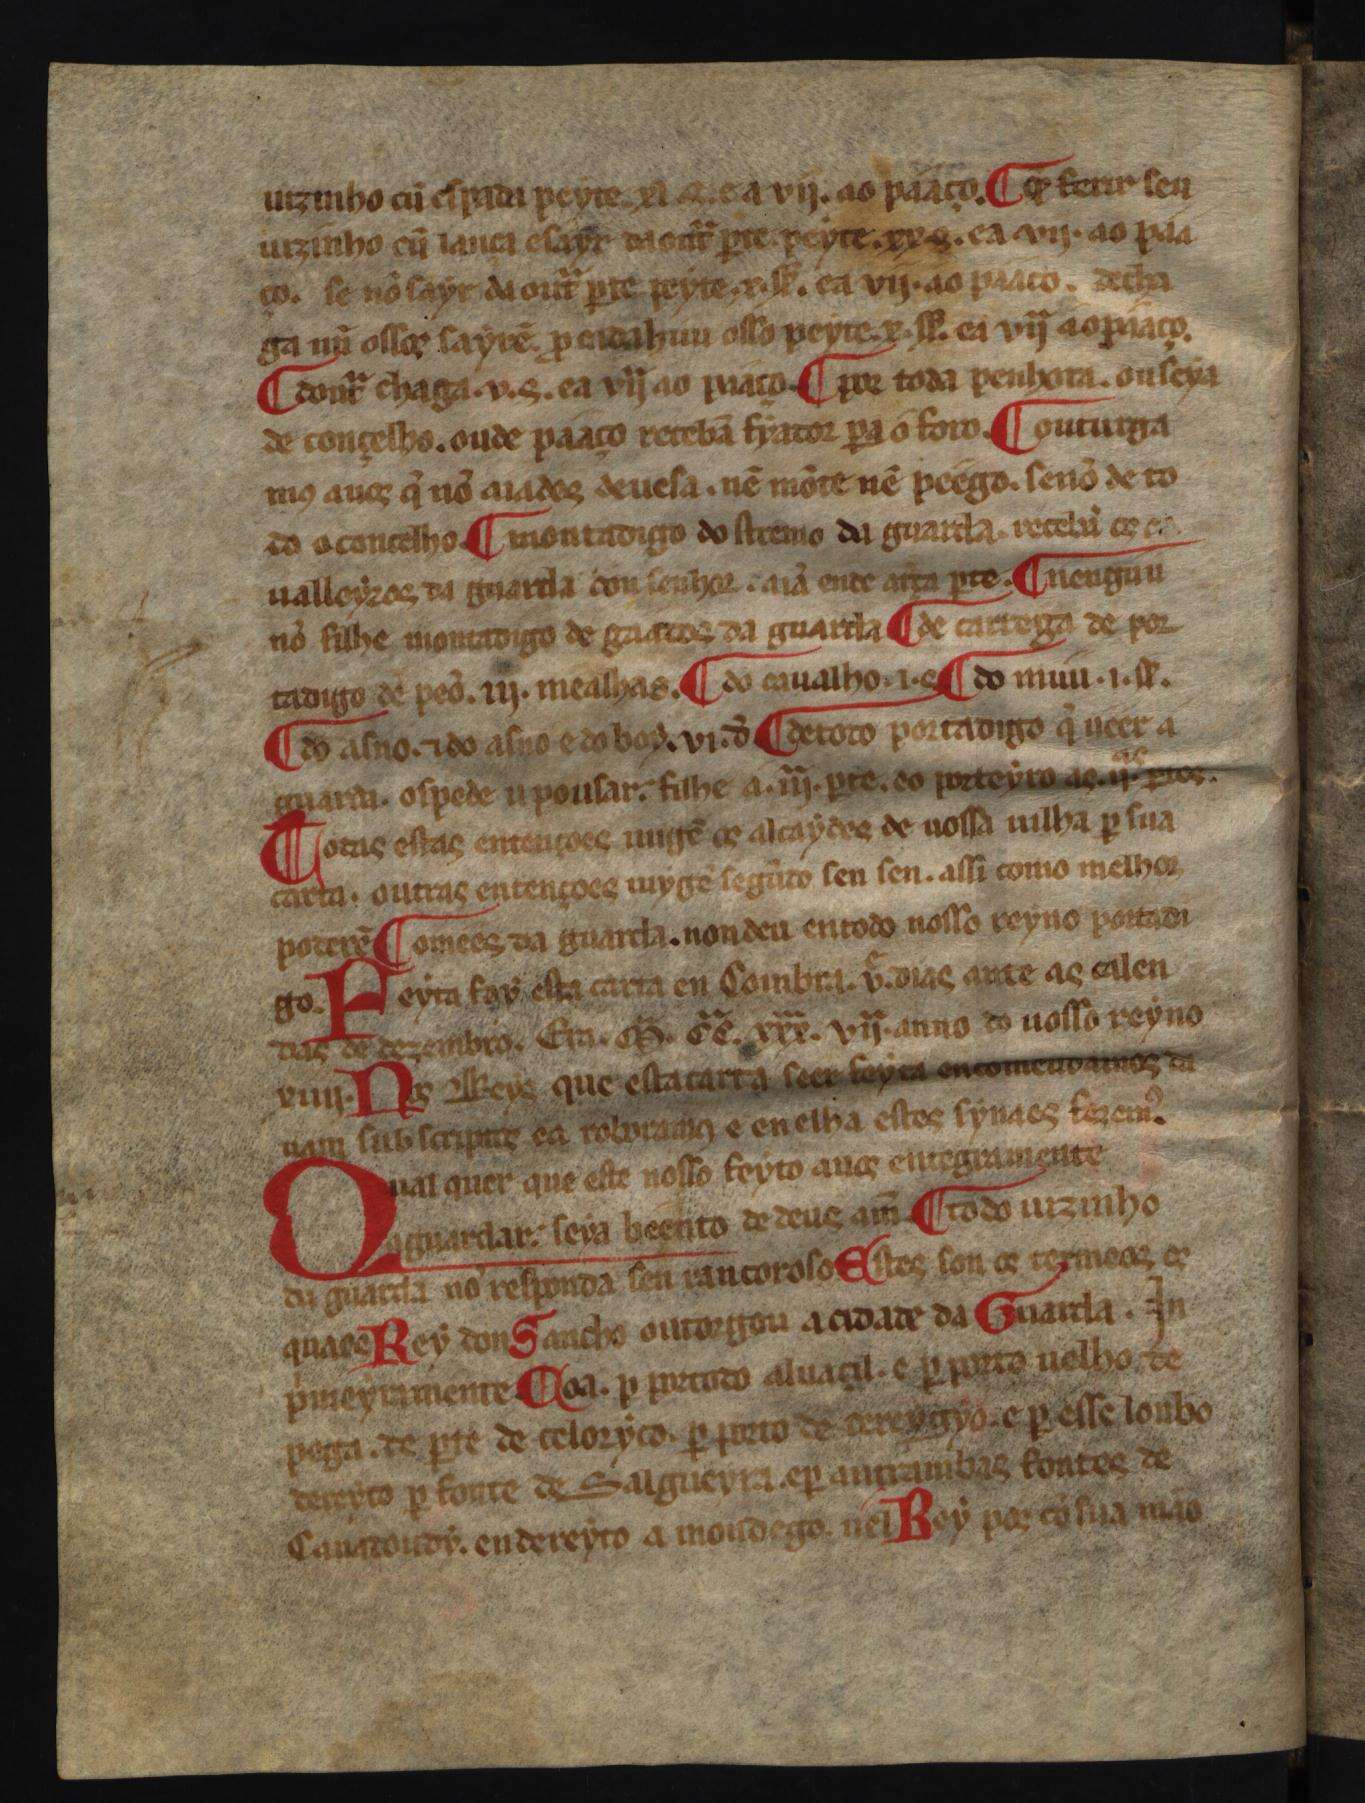 uizinho cũ espada peyte. xl. s. e a vij. ao paaço. ¶ Q̃ ferir seu
uizinho cũ lança e sayr da outͣ ꝑte. peyte. xx. s. e a vij. ao paa
ço. se nõ sayr da outͣ ꝑte peyte. x. sł. e a vij. ao paaço. de cha
ga ũ ossos sayrẽ. ꝑ cada huu osso peyte. x. sł. e a vij ao paaço.
¶ doutͣ chaga. v. s. e a vij ao paaço. ¶ por toda penhora. ou seya
de conçelho. ou de paaço recebã fyador ꝑa o foro. ¶ Outurga
mos auos q̃ nõ aiades deuesa. nẽ mõte nẽ peego. senõ de to
do o concelho. ¶ montadigo do stremo da guarda. recebã os ca
ualleyros da guarda con senhor. aiã ende a ꝑte. ¶ nenguu
nõ filhe montadigo de gaados da guarda ¶ de carrega de por
tadigo de peõ. iij. mealhas. ¶ do caualho. i. s. ¶ do muu. i. sł.
¶ do asno. do asno e do boy. vi. dõ ¶ de todo portadigo q̃ ueer a
guarda. ospede u pousar. filhe a. iij. ꝑte. e o porteyro as. ij. ꝑtes.
¶ Todas estas entenções iuigẽ os alcaydes de uossa uilha ꝑ sua
carta. outras entenções iuygẽ segũdo seu sen. assi como melhor
poderẽ ¶ Omees da guarda. non deu en todo nosso reyno portadi
go. Feyta foy esta carta en Coimbra. v. dias ante as calen
das de dezembro. Era. M. CC. xxx. vij. anno do nosso reyno
xiiij. Nos Reys que esta carta seer feyta encomendamos da
uam subscriptas e a roboramos e en elha estes synaes fezemꝰ.
Qual quer que este nosso feyto auos entegramente
aguardar. seya beento de deus am̃. ¶ todo uizinho
da guarda nõ responda sen rancoroso Estes son os termeos os
quaes Rey don Sancho outorgou a cidade da Guarda. In
pͥmeyramente. Coa. ꝑ portuto aluaçil. e ꝑ porto uelho. de
pega. de ꝑte de celoryco. ꝑ porto de cereygyo. e ꝑ esse loubo
dereyto ꝑ fonte de Salgueyra. e ꝑ antrambas fontes de
Cauaroudy. en dereyto a mondego. nel Rey por cõ sua mão